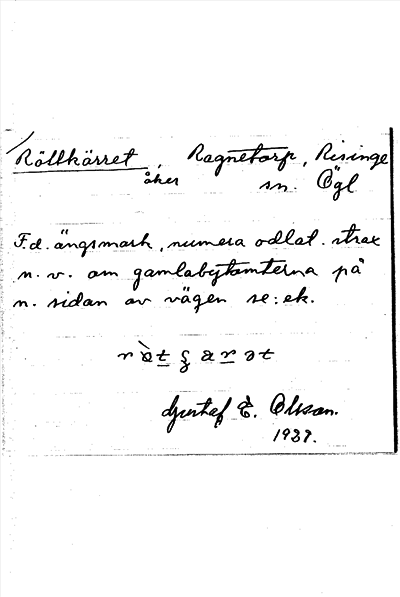 Röttkärret, Ragnetorp, Risinge
åker sn. Ögl
F.d. ängsmark, numera odlat. strax
n.v. om gamlabytomterna på
n. sidan av vägen se: ek.
Gustaf E. Olsson.
1937.